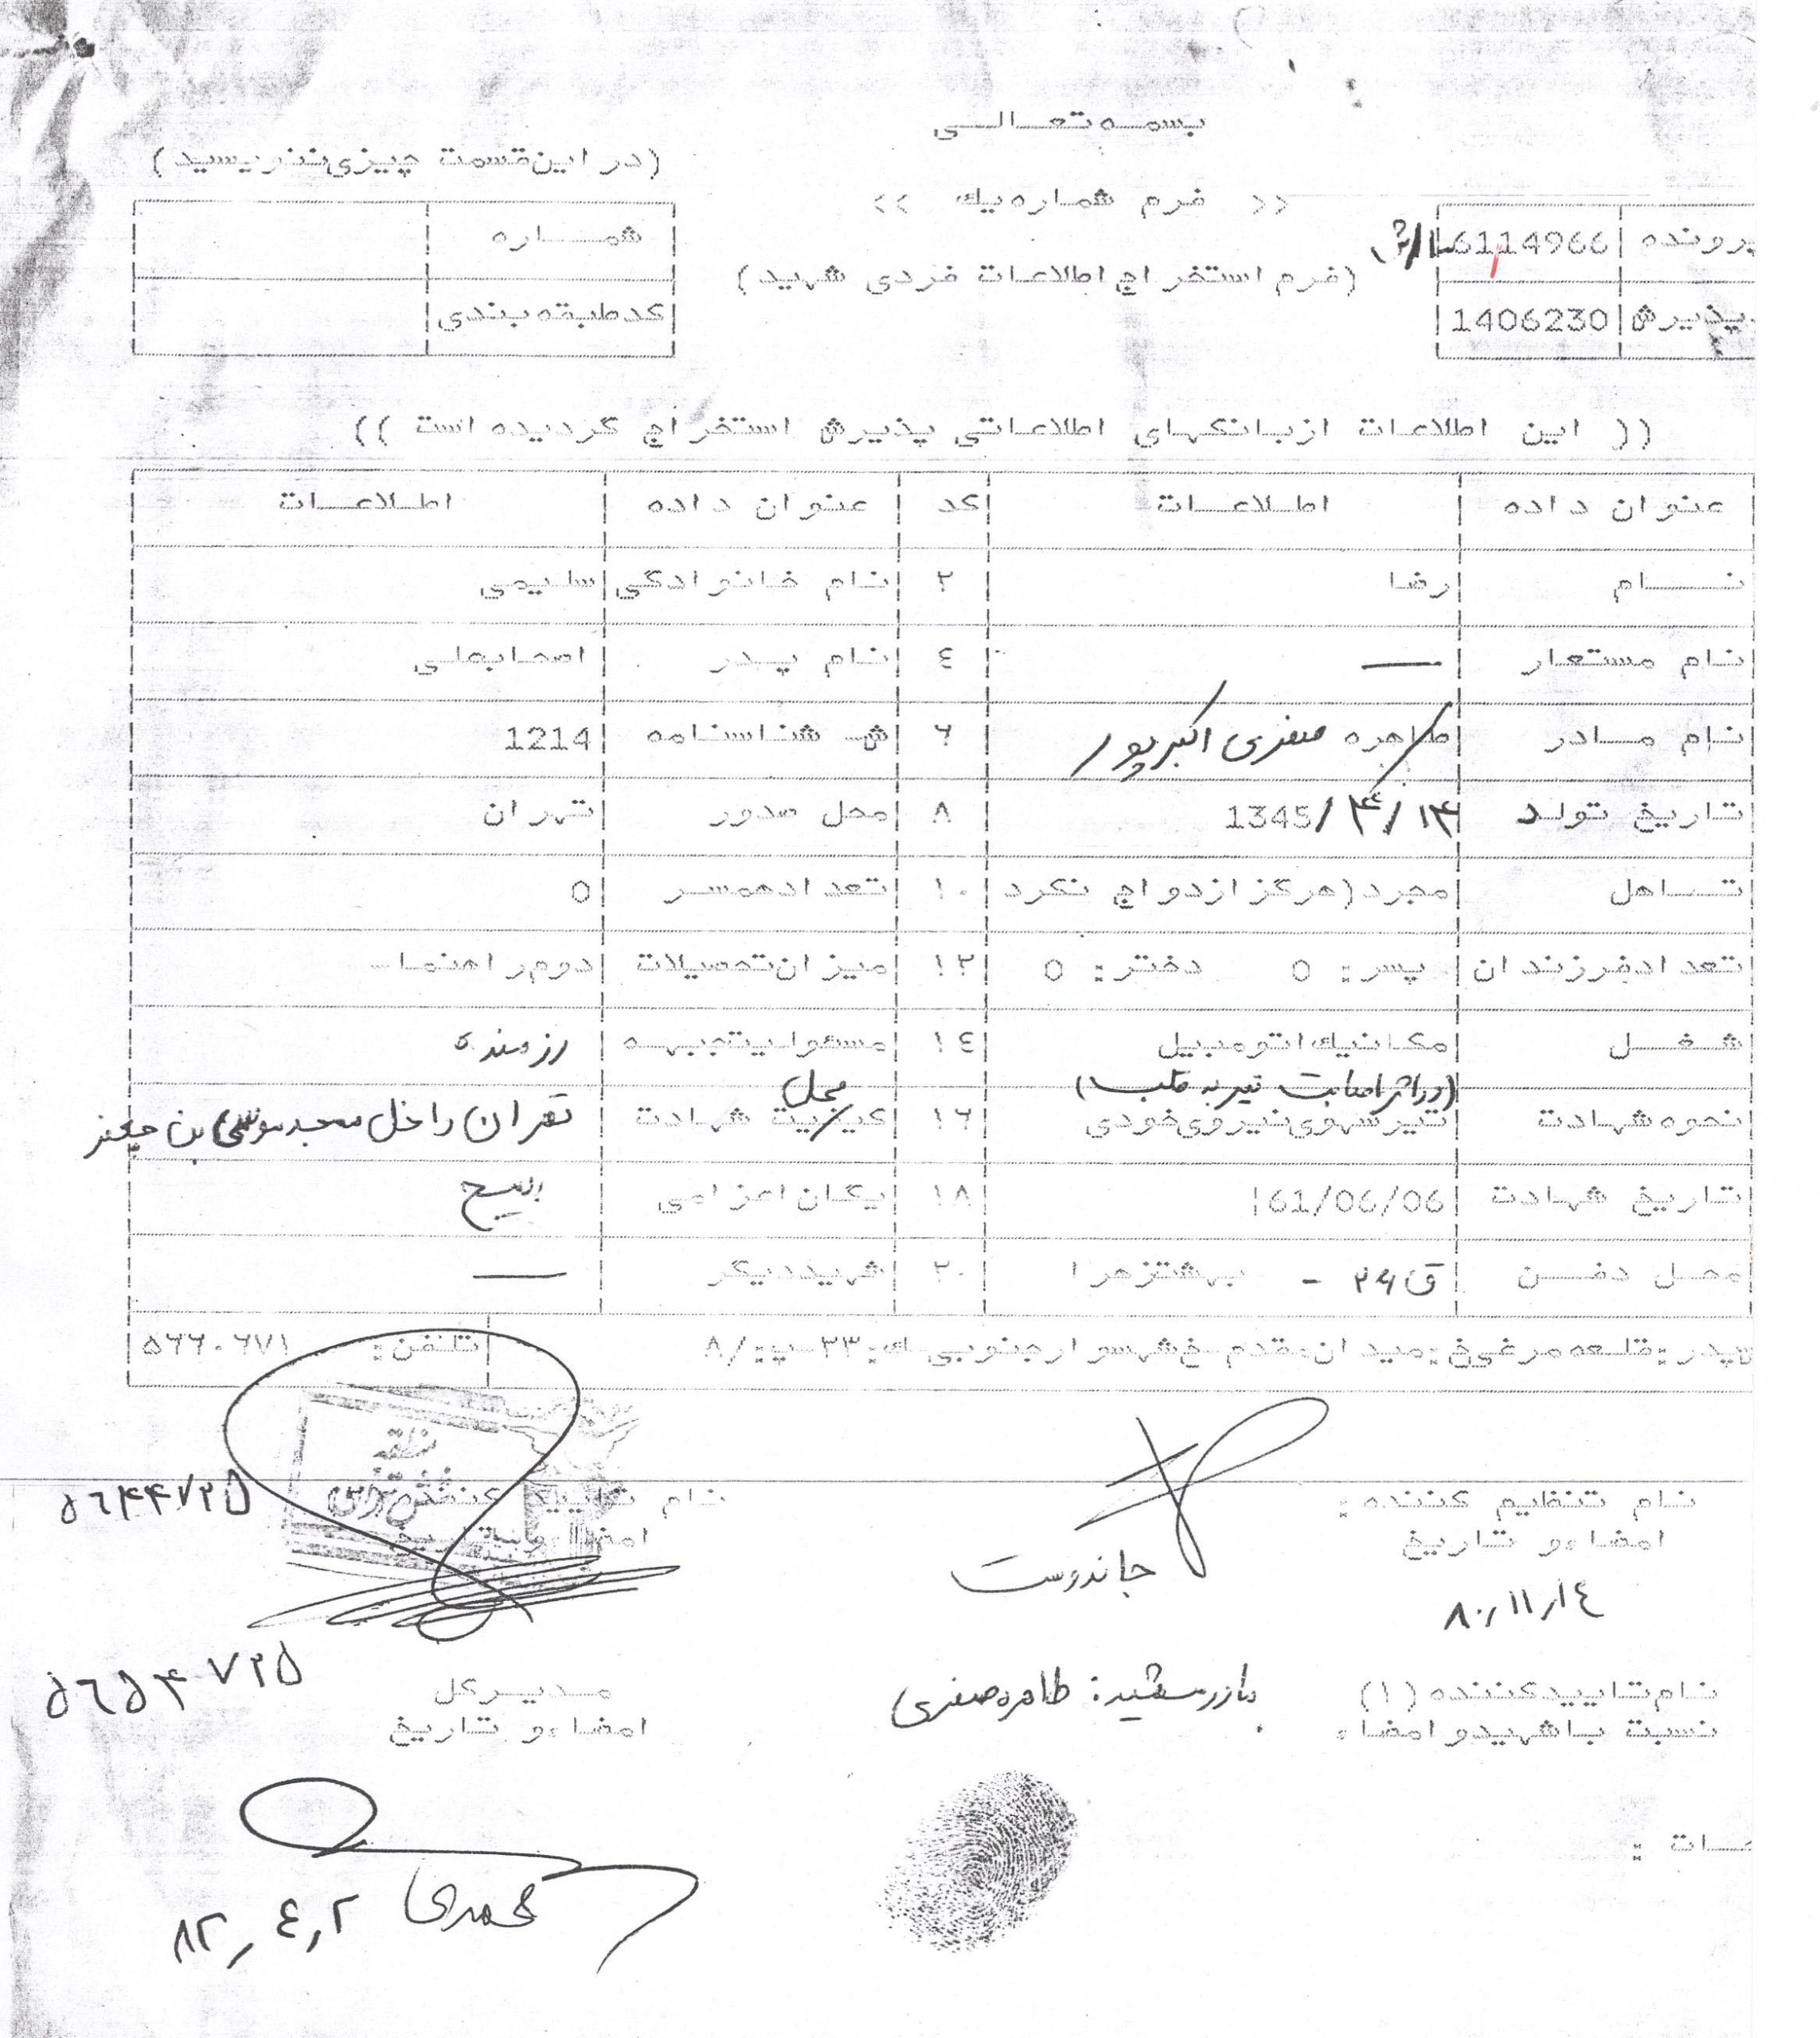 بسمه تعالی
(در این قسمت چیزی ننویسید)
<< فرم شماره یك >>
شماره
پرونده 6114966
(فرم استخراج اطلاعات فردی شهید)
کد طبقه بندی
پذیرش 1406230
(( این اطلاعات از بانکهای اطلاعاتی پذیرش استخراج گردیده است ))
عنوان داده اطلاعات کد عنوان داده اطلاعات
نام رضا ۲ نام خانوادگی سلیمی
نام مستعار — ٤ نام پدر اصحابعلی
نام مادر طاهره صفری اکبرپور ۶ ش شناسنامه 1214
تاریخ تولد 1345/۴/۱۴ ۸ محل صدور تهران
تاهل مجرد(هرگز ازدواج نکرد ۱۰ تعداد همسر 0
تعداد فرزندان پسر: 0 دختر: 0 ۱۲ میزان تحصیلات دوم راهنما-
شغل مکانیك اتومبیل ۱٤ مسئولیت جبهه رزمنده
(در اثر اصابت تیر به قلب) محل
نحوه شهادت تیر سهوی نیروی خودی ۱۶ کیفیت شهادت تهران داخل مسجد موسی بن جعفر
تاریخ شهادت 61/06/06 ۱۸ یگان اعزامی بسیج
محل دفن ق ۲۴ - بهشت زهرا ۲۰ شهید دیگر —
پدر: قلعه مرغی خ: میدان مقدم-خ شهسوار جنوبی-ك: ۳۳-پ: ۸/ تلفن: ۵۶۶۰۶۷۱
منطقه
نام تنظیم کننده: نام تایید کننده (۲) ۵۶۴۴۷۲۵
امضاء و تاریخ امضاء و تاریخ
جاندوست
۸۰/۱۱/۱٤
نام تایید کننده (۱) مادر شهید: طاهره صفری مدیر کل ۵۶۵۴۷۲۵
نسبت با شهید و امضاء امضاء و تاریخ
ات :
محمدی ۸۲/٤/۲